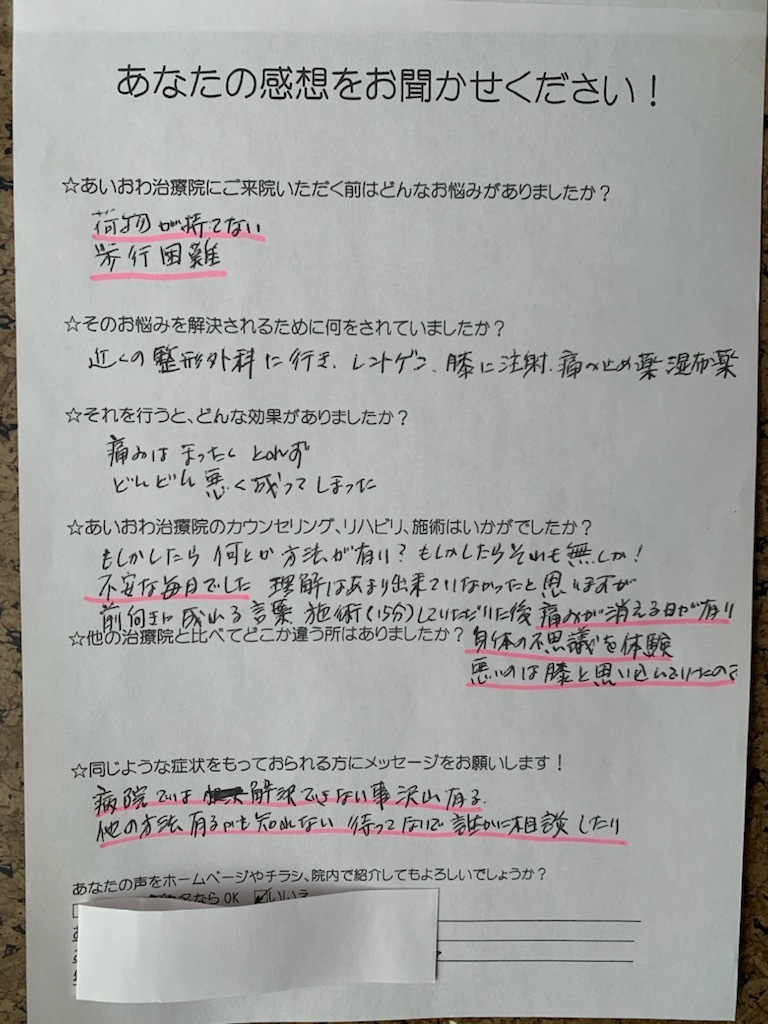 あなたの感想をお聞かせください!
☆あいおわ治療院にご来院いただく前はどんなお悩みがありましたか?
荷物が持てない
歩行困難
☆そのお悩みを解決されるために何をされていましたか?
近くの整形外科に行き、レントゲン、膝に注射、痛み止め薬 湿布薬
☆それを行うと、どんな効果がありましたか?
痛みはまったくとれず
どんどん悪く成ってしまった
☆あいおわ治療院のカウンセリング、リハビリ、施術はいかがでしたか?
もしかしたら何とか方法が有り? もしかしたらそれも無しか!
不安な毎日でした 理解はあまり出来ていなかったと思いますが
前向きに成れる言葉 施術(15分)していただいた後 痛みが消える日が有り
☆他の治療院と比べてどこか違う所はありましたか? 身体の不思議を体験
悪いのは膝と思い込んでいたので
☆同じような症状をもっておられる方にメッセージをお願いします!
病院では 解決できない事沢山有る
他の方法有るかも知れない 待ってないで誰かに相談したり
あなたの声をホームページやチラシ、院内で紹介してもよろしいでしょうか?
名なら OK いいえ